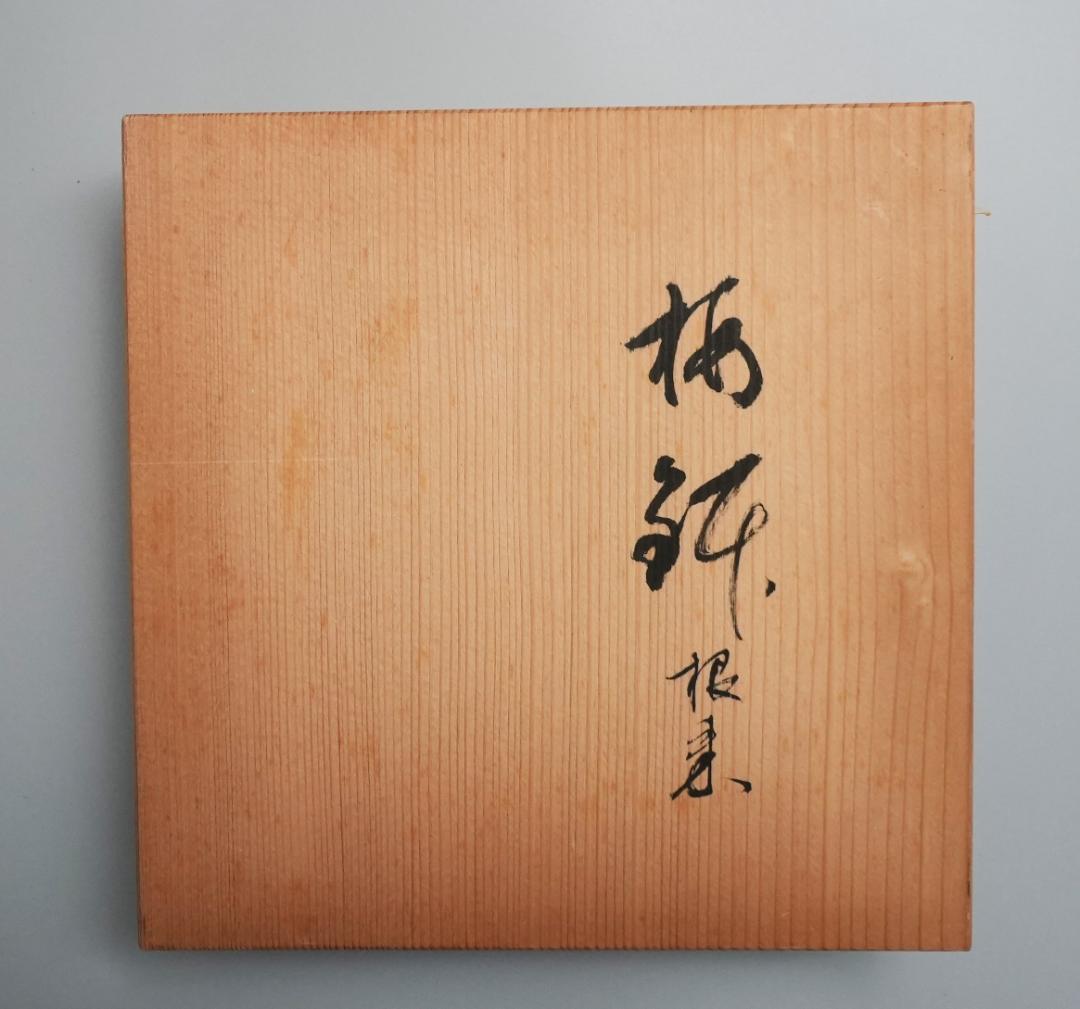 梅鉢 根来